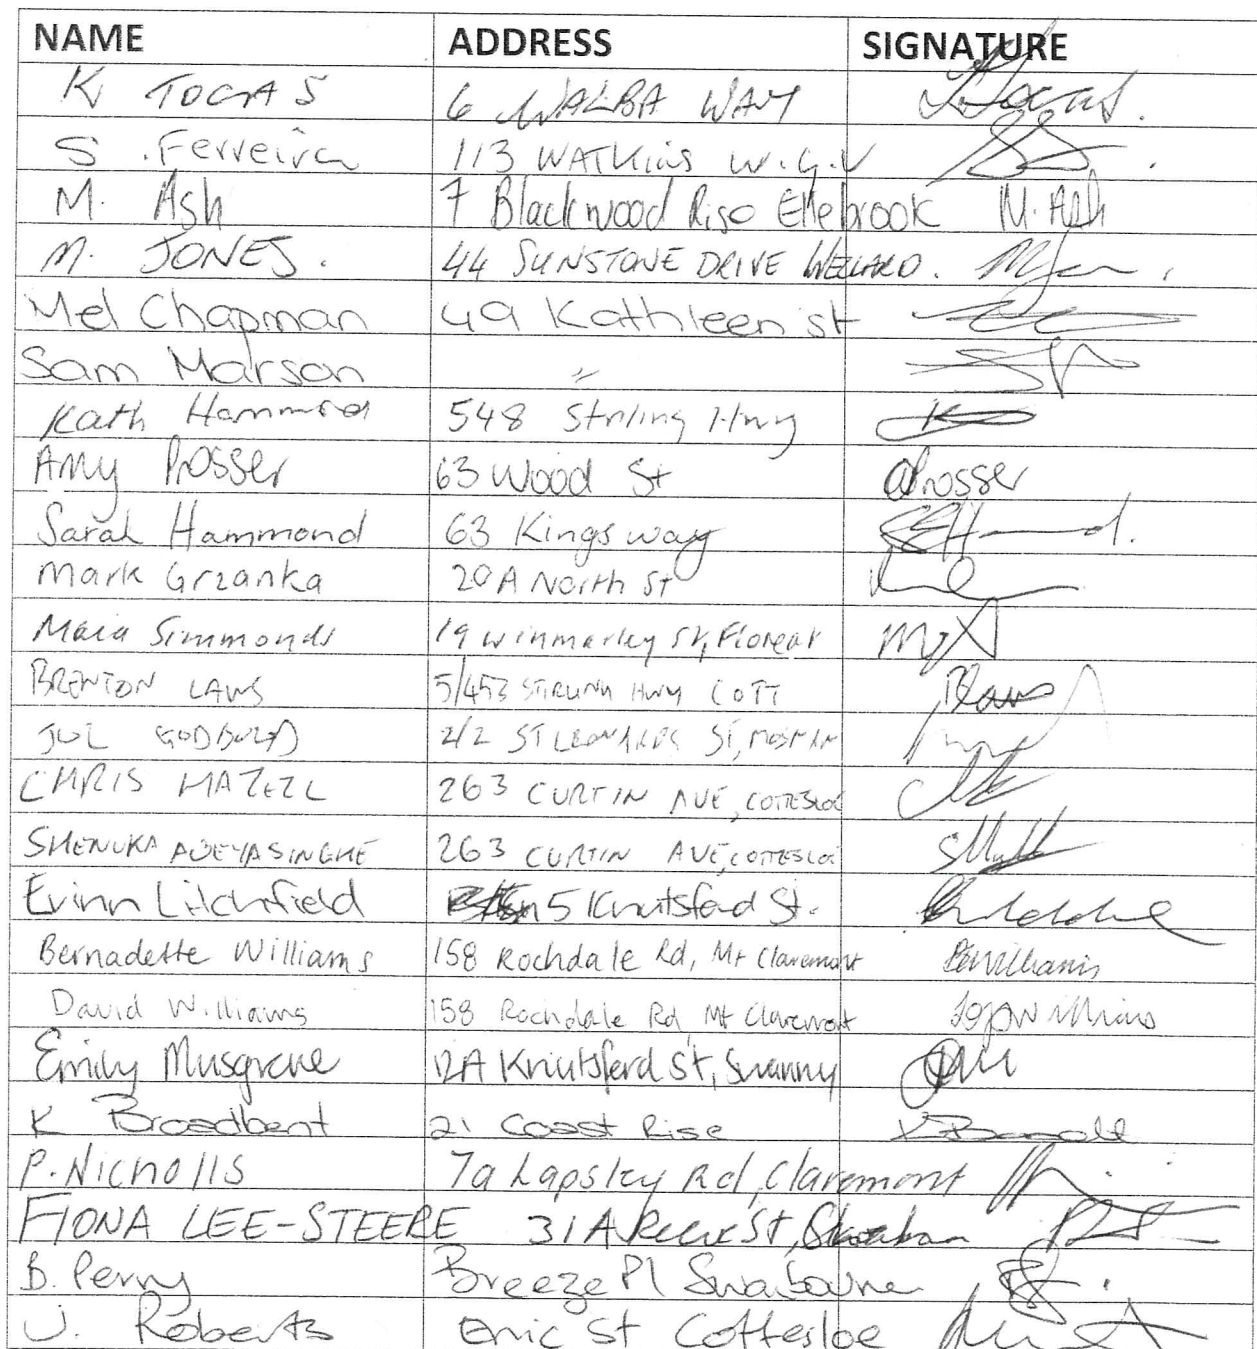 NAME ADDRESS SIGNATURE
K TOCAS 6 WALBA WAY
S. Ferreira 113 WATKINS W.G.V
M. Ash 7 Blackwood Rise Ellebrook M. Ash
M. JONES. 44 SUNSTONE DRIVE WELLARD.
Mel Chapman 49 Kathleen st
Sam Marson "
Kath Hammond 548 Stirling Hwy
Amy Prosser 63 Wood St aProsser
Sarah Hammond 63 Kingsway
Mark Grzanka 20A North St
Maia Simmonds 19 Winmarley St, Floreat
BRENTON LAWS 5/453 STIRLING HWY COTT
GODBOLD 2/2 ST LEONARDS ST, MOSMAN
CHRIS HAZELL 263 CURTIN AVE, COTTESLOE
SHENUKA ABEYASINGHE 263 CURTIN AVE, COTTESLOE
Evinn Litchfield 5 Knutsford St.
Bernadette Williams 158 Rochdale Rd, Mt Claremont
David Williams 158 Rochdale Rd Mt Claremont
Emily Musgrave 12A Knutsford St, Swanny
K Broadbent 21 Coast Rise
P. Nicholls 7a Lapsley Rd, Claremont
FIONA LEE-STEERE 31A St,
B. Perry Breeze Pl Swanbourne
J. Roberts Eric St Cottesloe